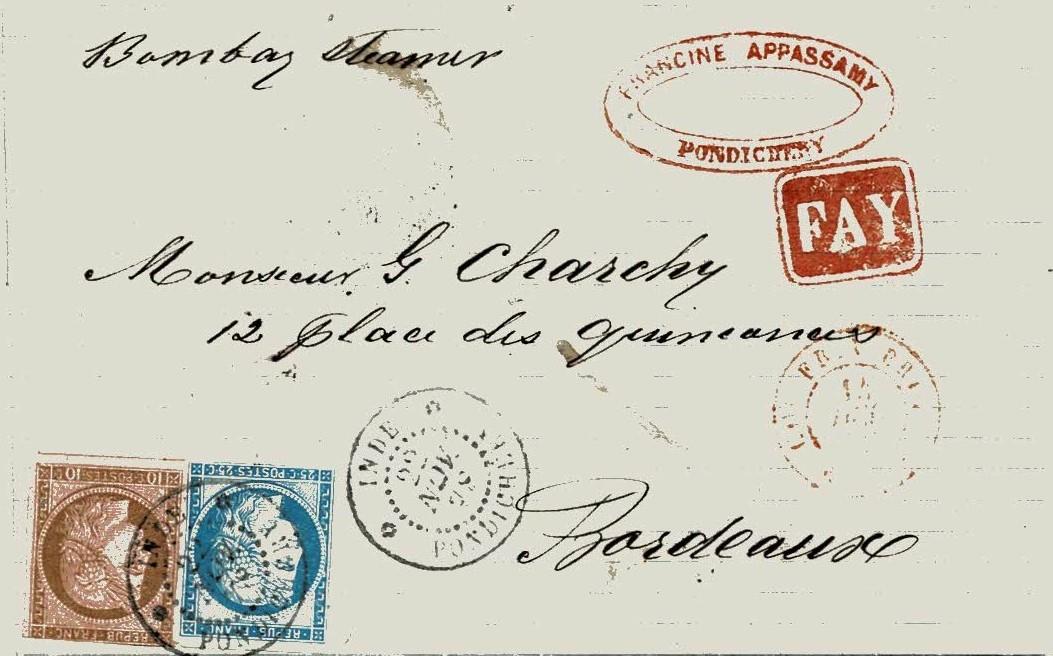 Bombay Steamer
FRANCINE APPASSAMY
PONDICHERY
FAY
Monsieur G Charchy
12 place des quinconces
INDE
PONDICHERY
Bordeaux
10 C. POSTES 10 C
REPUB. FRANC.
25 C. POSTES 25 C
REPUB. FRANC.
INDE
POND